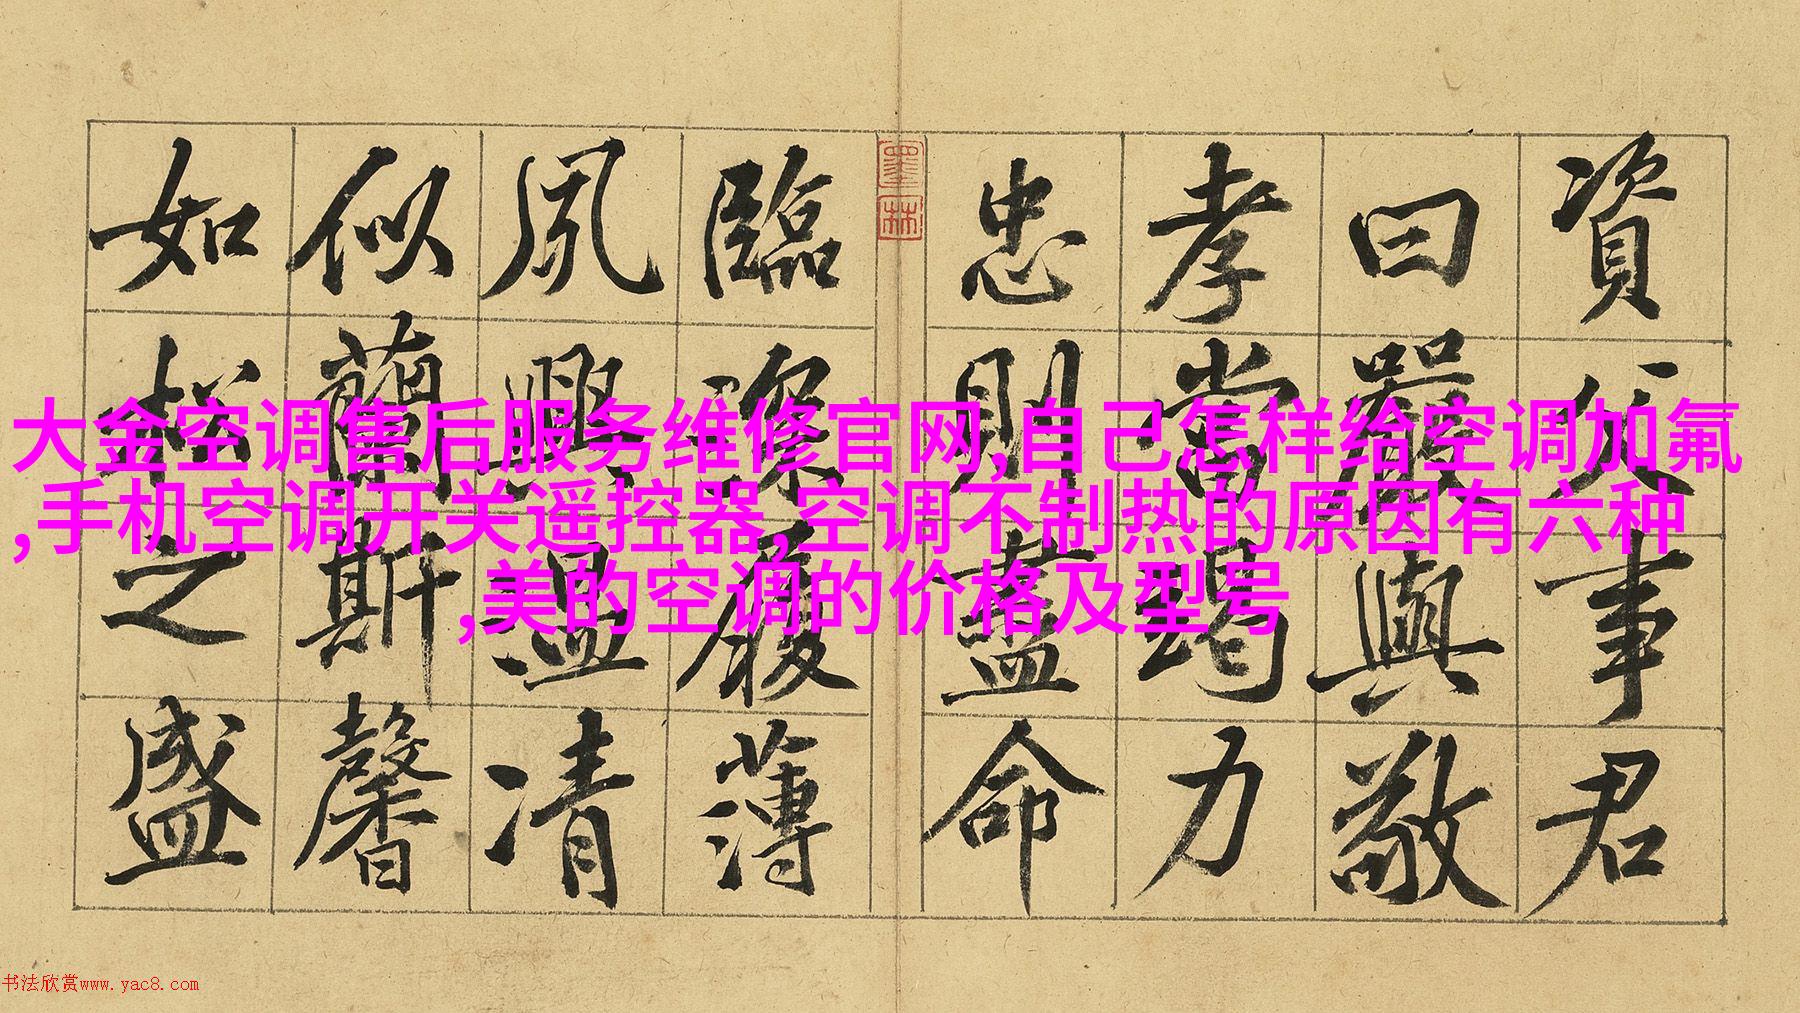 資父事君
曰嚴與敬
孝當竭力
忠則盡命
臨深履薄
夙興温凊
似蘭斯馨
如松之盛
墨林
大金空调售后服务维修官网,自己怎样给空调加氟
,手机空调开关遥控器,空调不制热的原因有六种
,美的空调的价格及型号
书法欣赏www.yac8.com